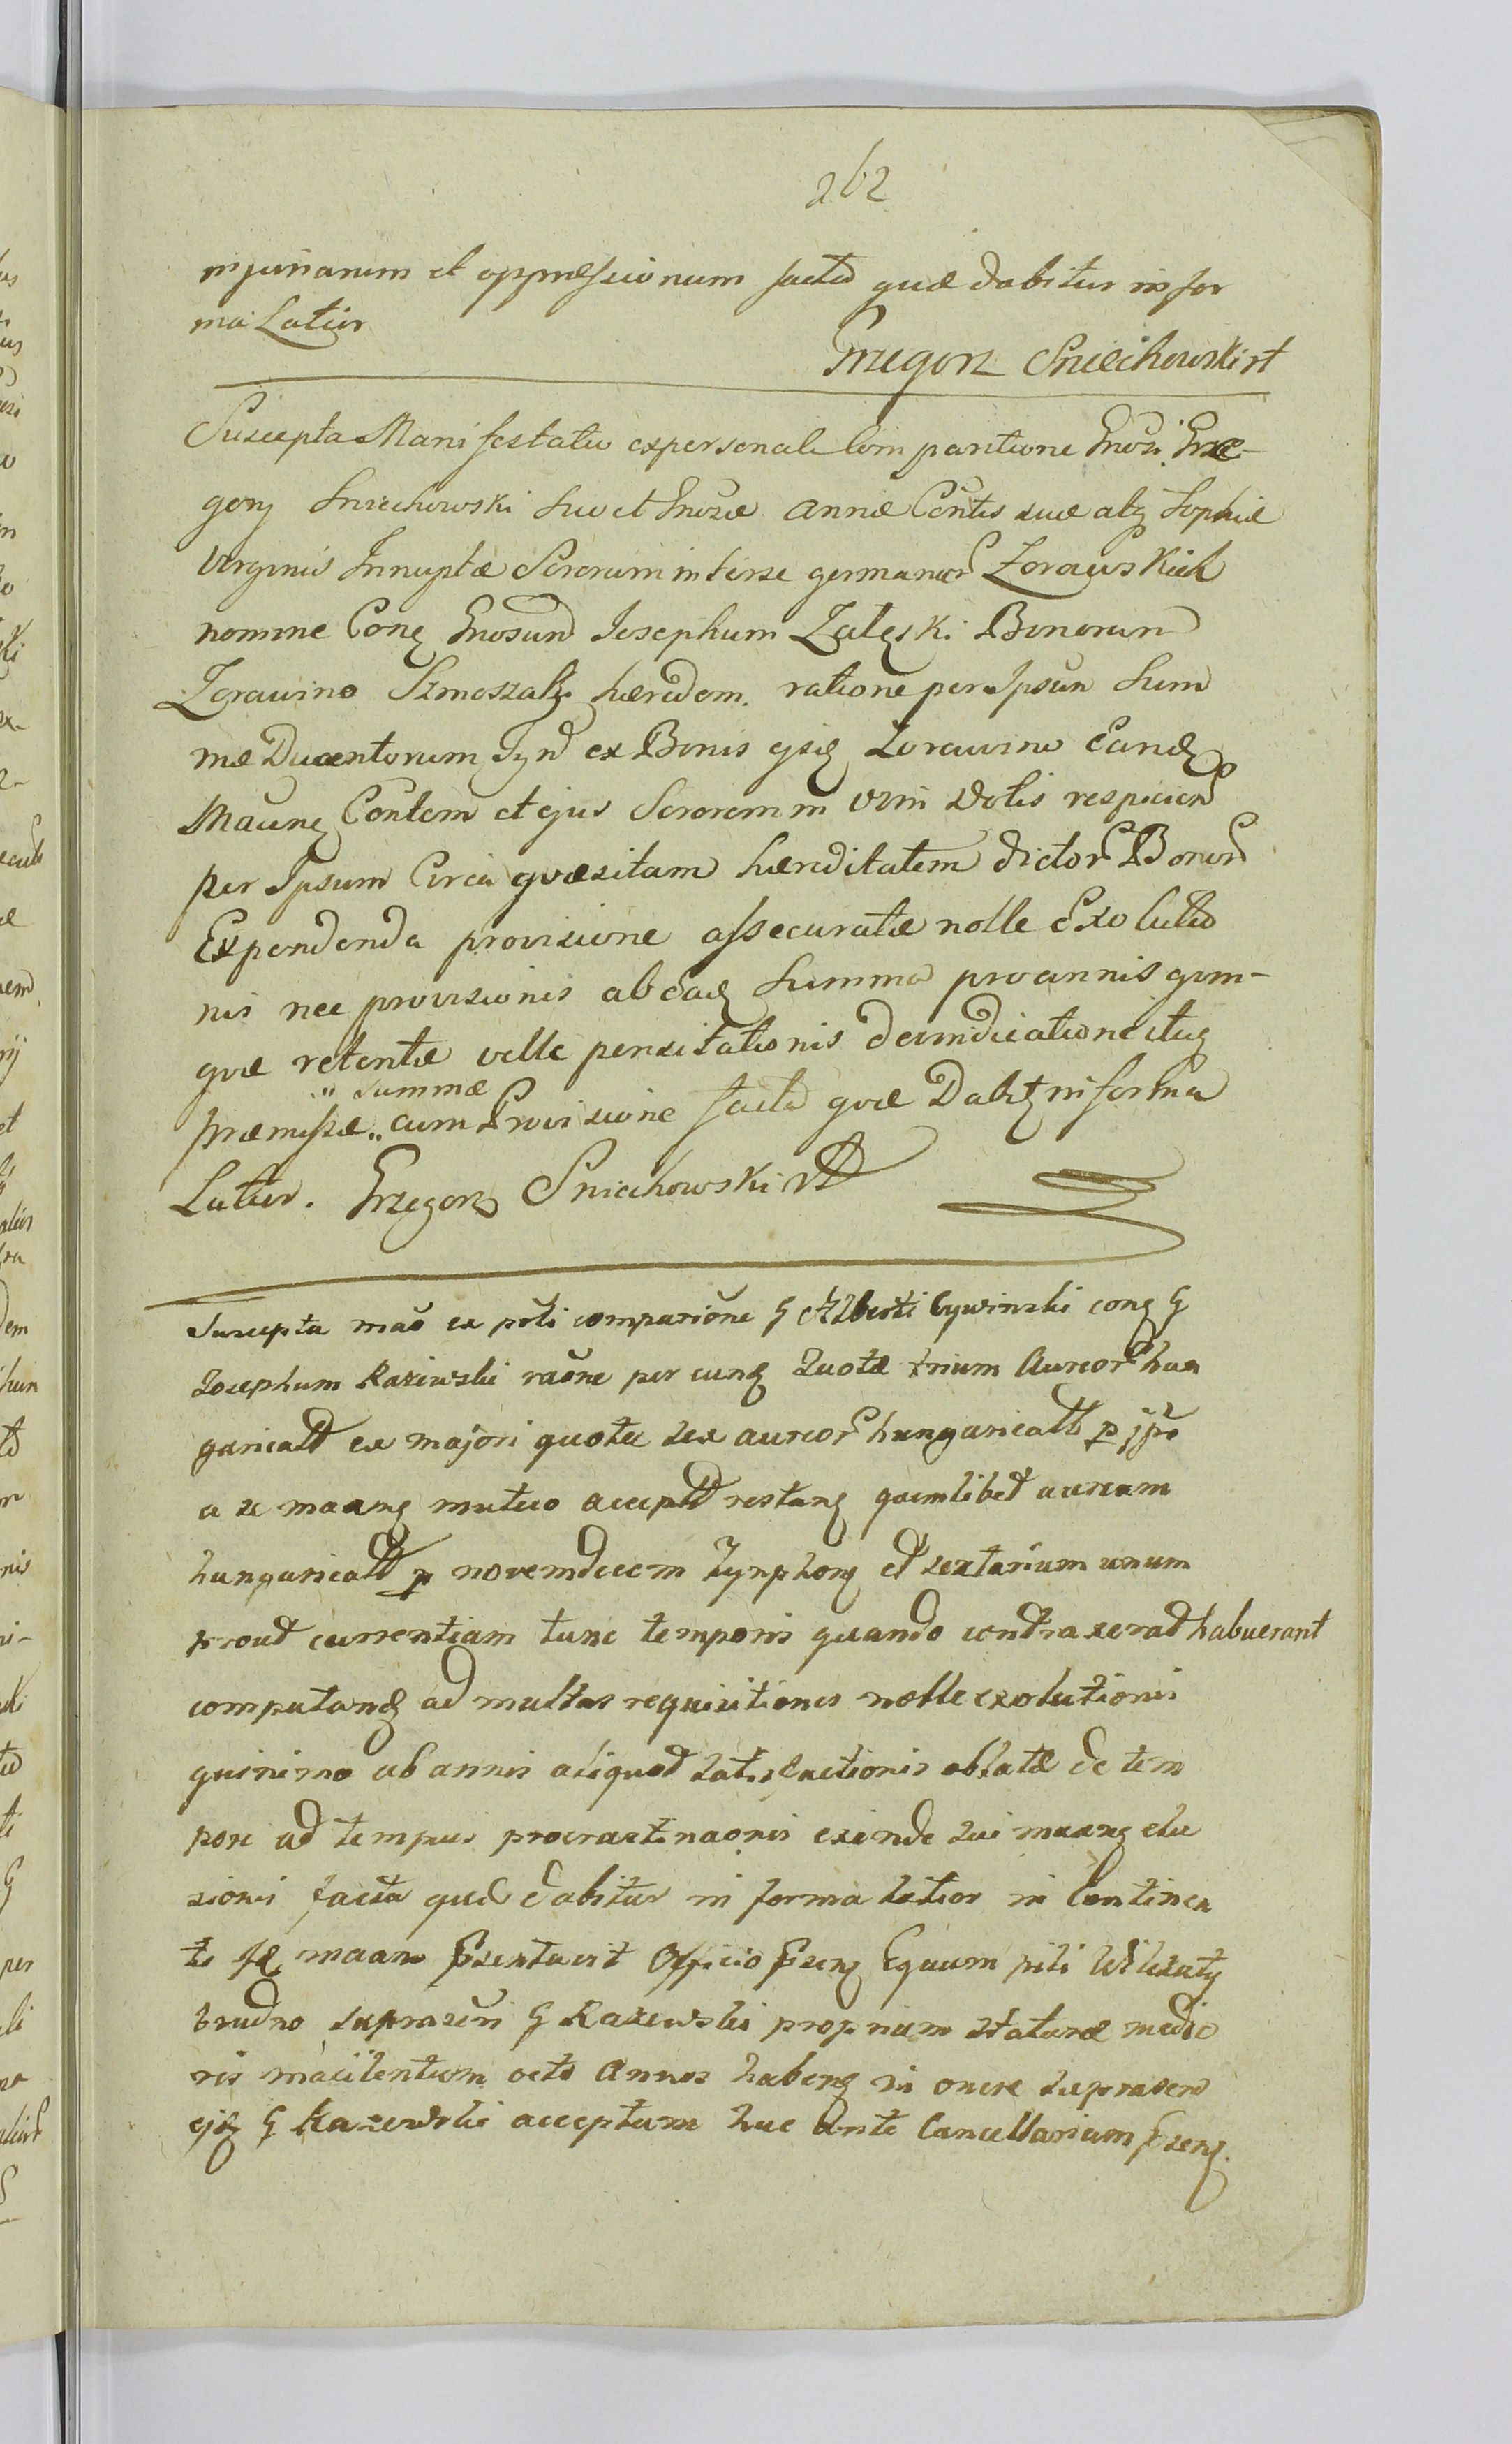 262
injuriarum et oppressionum facta quæ dabitur in for
ma Latior
Grzegorz Sniechowski
Suscepta Manifestatio ex personali Com paritione Gnosi. Grze-
gorz Sniechowski suo et Gnosæ Annæ Contis suæ atq Sophiæ
Virginis Innuptæ Sororum inter se germanar Zorawskich
nomine Conq Gnosum Josephum Zalęski Bonorum
Zorawino Szmoszalz hæredem. ratione per Ipsum Sum
mæ Ducentorum Tyn ex Bonis ejsq Zorawino Eand
Maūnq Contem et ejus Sororem in vim Dotis respicien
per Ipsum Circa quæsitam hæreditatem dictor Bonor
Expendenda provisione assecuratæ nolle Exolutio
nis nec provisionis ab eadq Summa pro annis quin-
que retentæ velle pensitationis de vindicatione itaq
præmissæ „ summæ cum Provisione facta quæ Dabit in forma
Latior. Grzegorz Sniechowski
Suscepta mao ex prli comparitione G Alberti Cywinski conq G
Josephum Kazewski raone per eund Quotæ trium Aureor hun
garicall ex majori quota sex aureor hungaricall p ipso
a se maanq mutuo accept restanq quemlibet aureum
hungaricall p novemdecem Tynphonq et sextarium unum
prout currentiam tunc temporis quando contraxerat habuerant
computandq ad multas requisitiones nolle exolutionis
quinimo ab annis aliquot satisfactionis oblatæ de tem
pore ad tempus procrastinaonis exinde sui maanq elu
sionis facta quæ dabitur in forma latior in Continen
te Iq maans Pzentavit Officio Pzenq Equum pili Wilczaty
brudno suprascri G Kazewski proprium staturæ medio
ris macilentum octo Annos habenq in onere suprascr
ejsq G Kazewski acceptum huc Ante Cancellariam Pzenq.